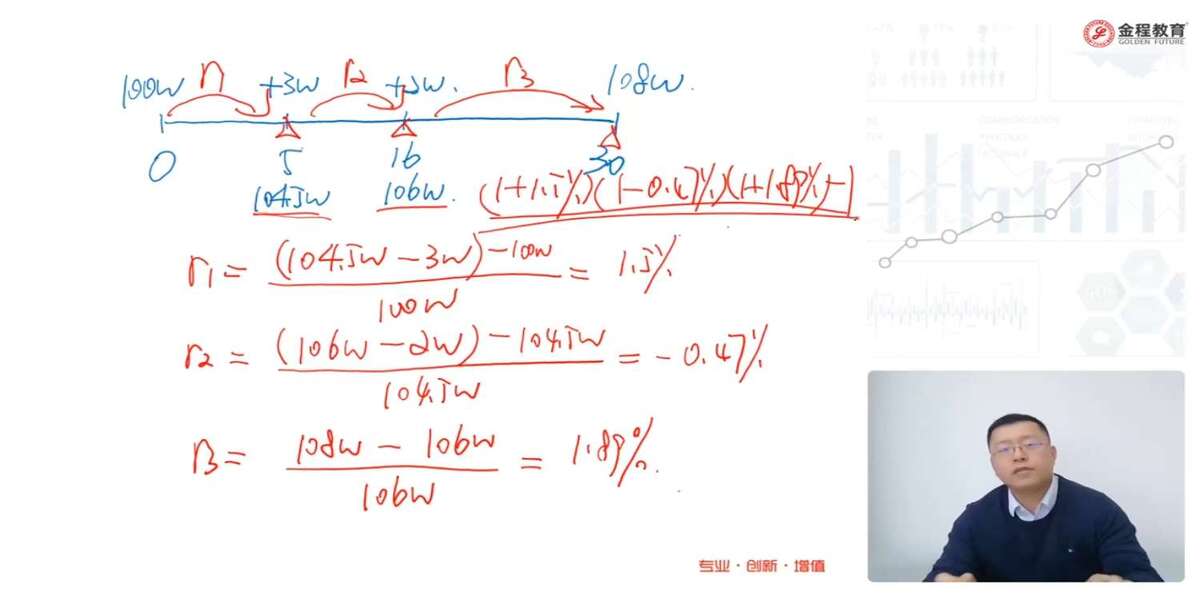 金程教育
GOLDEN FUTURE
100w r1 +3w r2 +2w. r3 108w.
0 5 16 30
104.5w 106w. (1+1.5%)(1-0.47%)(1+1.89%)-1
r1 = (104.5w-3w)-100w / 100w = 1.5%
r2 = (106w-2w)-104.5w / 104.5w = -0.47%
r3 = 108w-106w / 106w = 1.89%.
专业·创新·增值